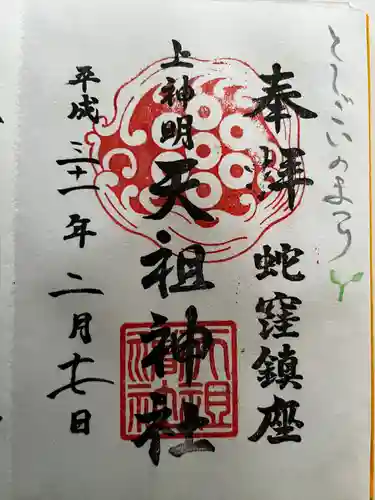 としごいのまつり
奉拝 蛇窪鎮座
上神明
天祖神社
平成三十一年二月十七日